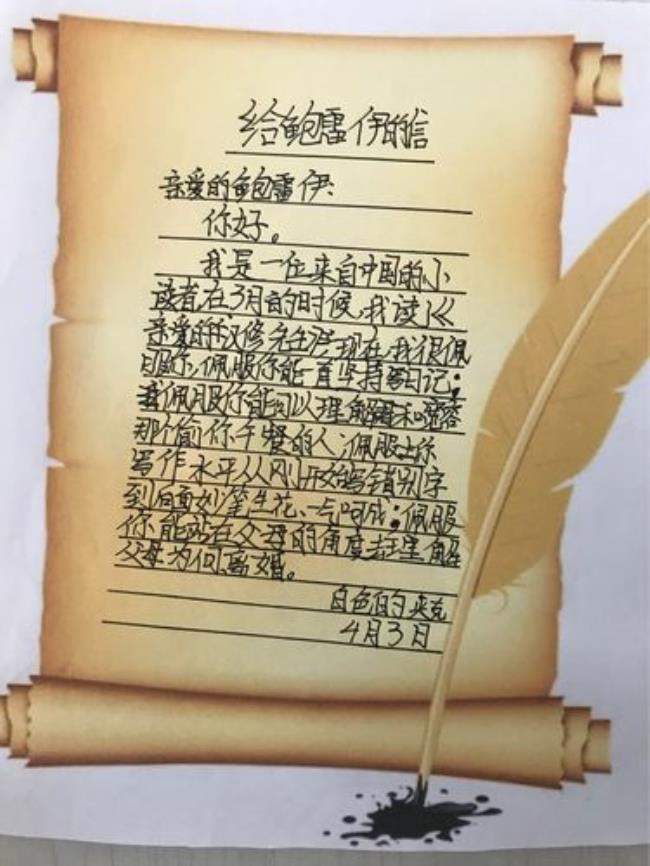 给鲍雷伊的信
亲爱的鲍雷伊:
你好。
我是一位来自中国的小
读者在3月的时候,我读了《
亲爱的汉修先生》现在,我很佩
服你,佩服你能一直坚持写日记;
佩服你能可以理解和宽容
那个偷你午餐的人;佩服你
写作水平从刚开始写错别字
到后面妙笔生花、一气呵成;佩服
你能站在父母的角度去理解
父母为何离婚。
白色的夹克
4月3日